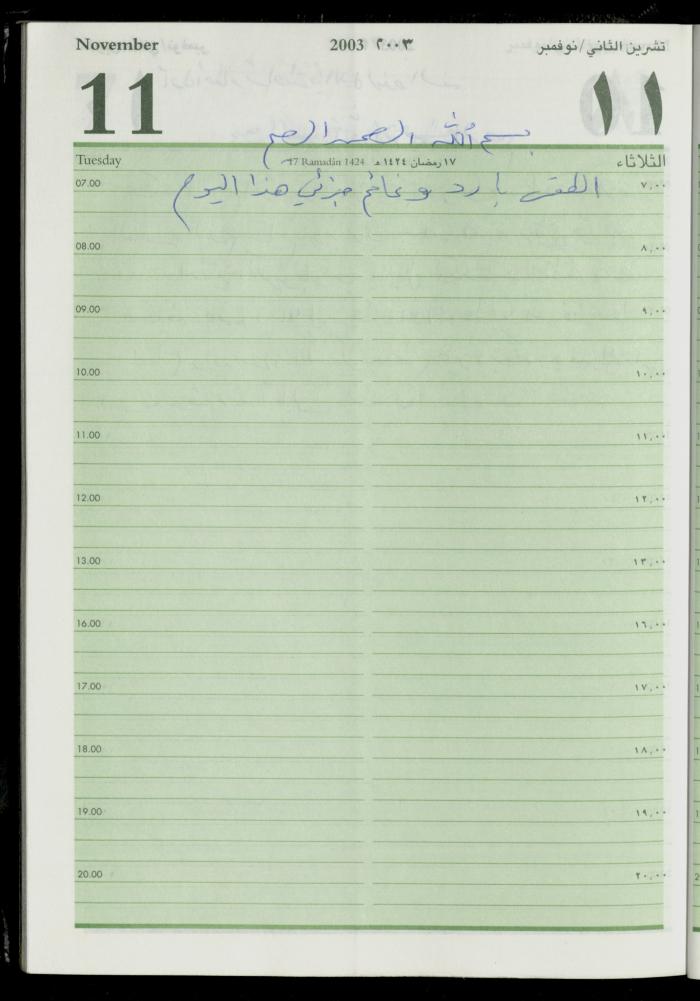 November 2003 ٢٠٠٣ تشرين الثاني/نوفمبر
11 ١١
بسم الله الرحمن الرحيم
Tuesday 17 Ramadân 1424 ١٧ رمضان ١٤٢٤ هـ الثلاثاء
07.00 ٧,٠٠
الطقس بارد وغائم جزئي هذا اليوم
08.00 ٨,٠٠
09.00 ٩,٠٠
10.00 ١٠,٠٠
11.00 ١١,٠٠
12.00 ١٢,٠٠
13.00 ١٣,٠٠
16.00 ١٦,٠٠
17.00 ١٧,٠٠
18.00 ١٨,٠٠
19.00 ١٩,٠٠
20.00 ٢٠,٠٠